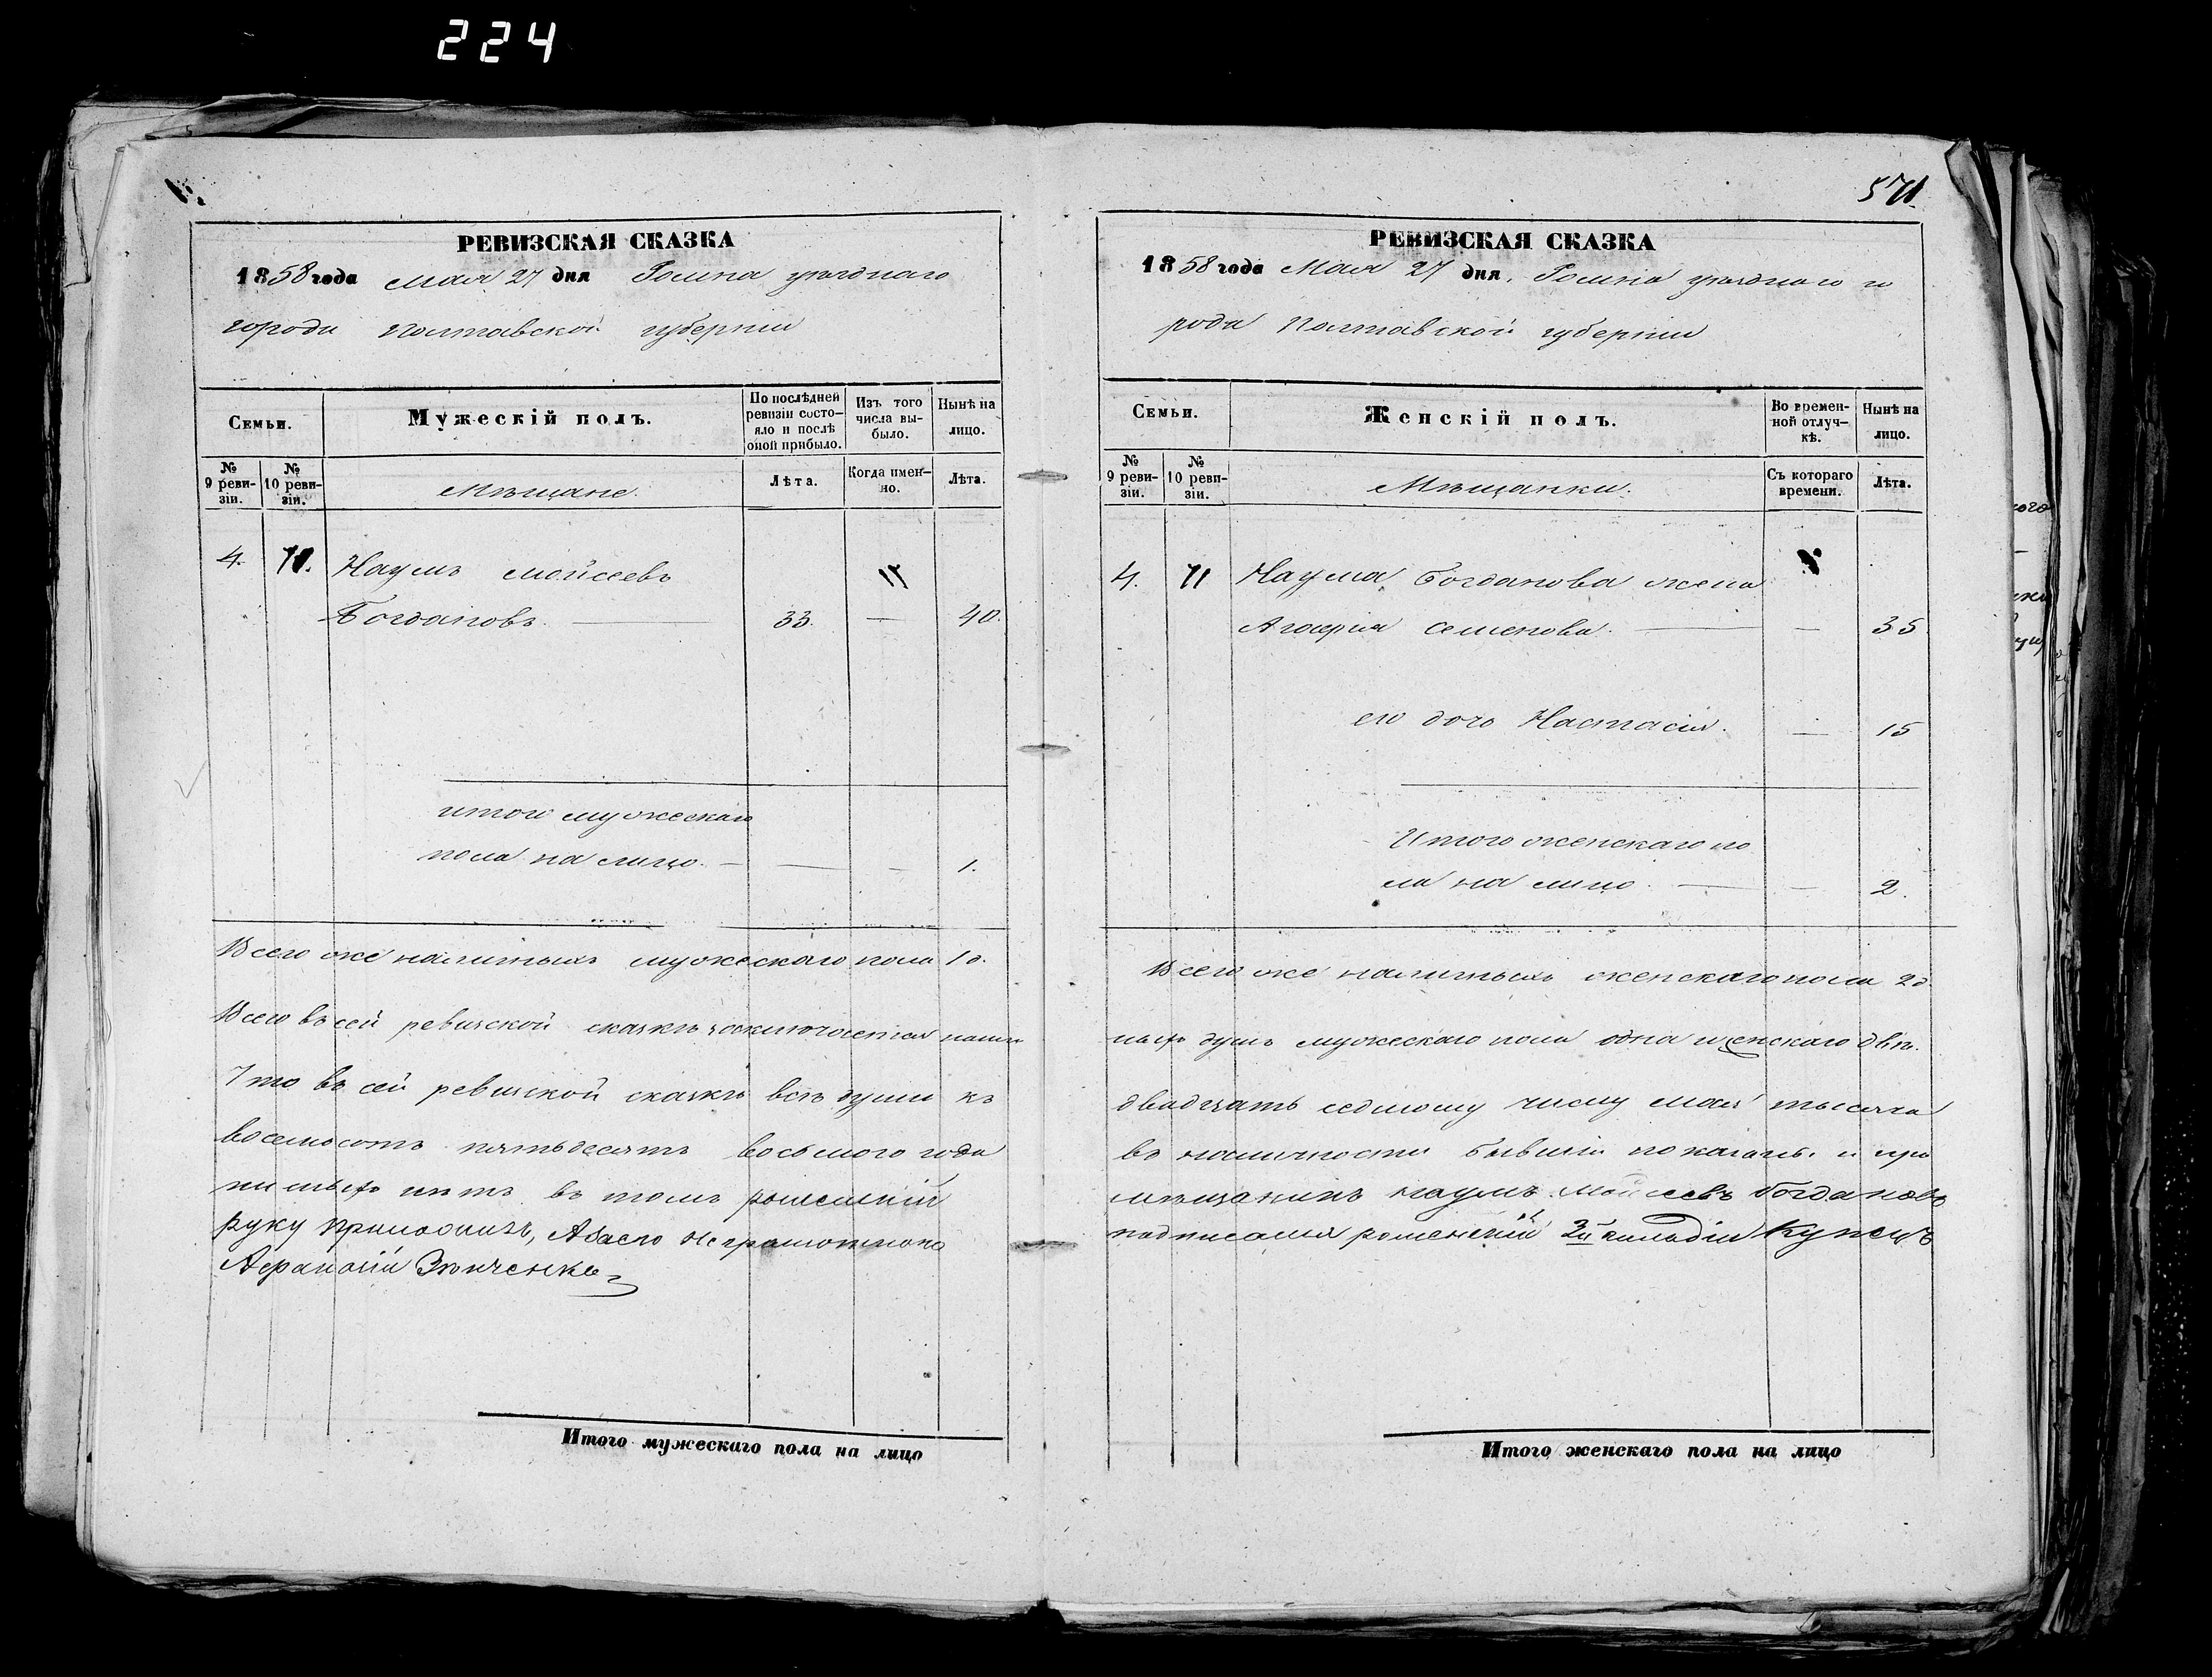 224
571
РЕВИЗСКАЯ СКАЗКА
1858 года Мая 27 дня Ромна уѣзднаго
города Полтавской губерніи
Семьи.
Мужескій полъ.
По послѣдней ревизіи состо-
яло и послѣ оной прибыло.
Изъ того числа вы-
было.
Нынѣ на лицо.
№ 9 реви-
зіи.
№ 10 реви-
зіи.
Мѣщане.
Лѣта.
Когда имен-
но.
Лѣта.
4. 71. Наумъ Мойсеевъ
Богдановъ. 33. — 40.
итого мужескаго
пола на лицо. — — — 1.
Всего же наличныхъ мужескаго пола 1 д.
Всего въ сей ревизской сказкѣ заключается налич
Что въ сей ревизской сказкѣ всѣ души къ
восемьсотъ пятьдесятъ восьмого года
писныхъ нѣтъ въ томъ роменскій
руку приложилъ, Абаего неграмотнаго
Афанасій Зѣнченко
Итого мужескаго пола на лицо
РЕВИЗСКАЯ СКАЗКА
1858 года Мая 27 дня. Ромна уѣзднаго го
рода Полтавской губерніи
Семьи.
Женскій полъ.
Во времен-
ной отлуч-
кѣ.
Нынѣ на лицо.
№ 9 реви-
зіи.
№ 10 реви-
зіи.
Мѣщанки.
Съ котораго времени.
Лѣта.
4. 71 Наума Богданова жена
Агафія Семенова. — — 35
его дочь Настасія. — 15
Итого женскаго по
ла на лицо. — — 2.
Всего же наличныхъ женскаго пола 2 д.
ныхъ душъ мужескаго пола одна и женскаго двѣ.
двадцать седьмому числу мая тысяча
въ наличности бывшіи показаны и про
мѣщанинъ Наумъ Мойсеевъ Богдановъ
подписался роменскій 3й гильдіи Купецъ
Итого женскаго пола на лицо